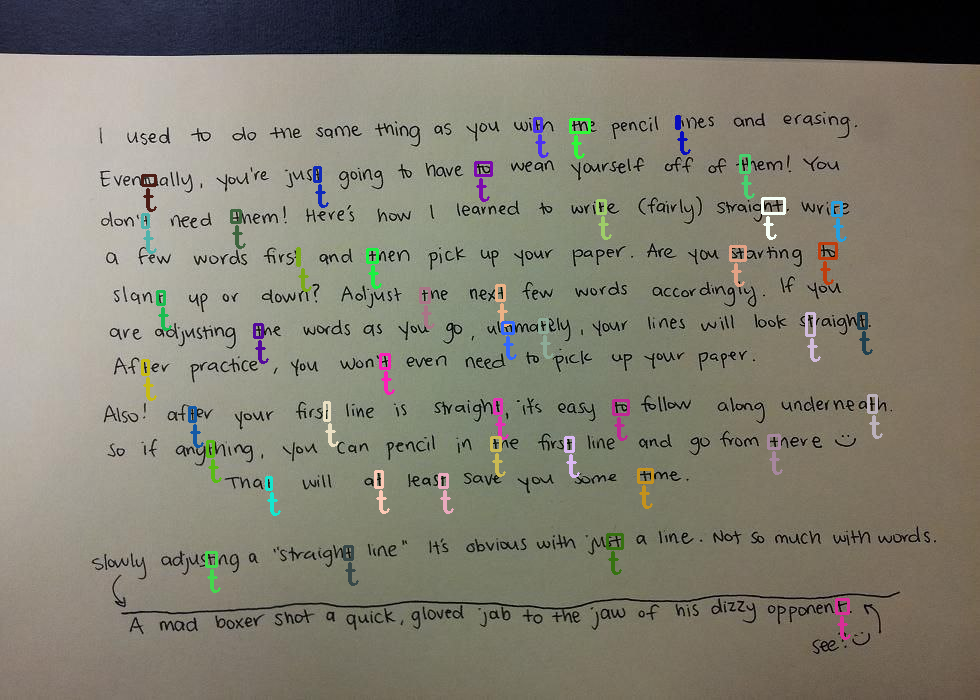 I used to do the same thing as you with the pencil lines and erasing.
Eventually, you're just going to have to wean yourself off of them! You
don't need them! Here's how I learned to write (fairly) straight. Write
a few words first and then pick up your paper. Are you starting to
slant up or down? Adjust the next few words accordingly. If you
are adjusting the words as you go, ultimately, your lines will look straight.
After practice, you won't even need to pick up your paper.
Also! after your first line is straight, it's easy to follow along underneath.
So if anything, you can pencil in the first line and go from there
That will at least save you some time.
slowly adjusting a "straight line" It's obvious with just a line. Not so much with words.
A mad boxer shot a quick, gloved jab to the jaw of his dizzy opponent.
see?